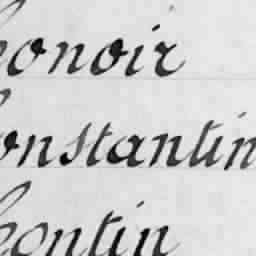 honoir
Constantin
Leontin